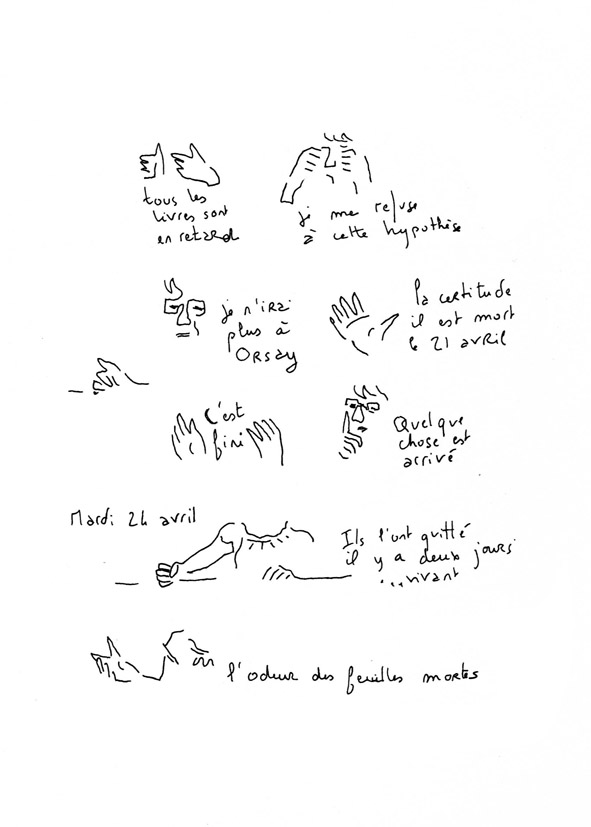 tous les
livres sont
en retard
je me refuse
à cette hypothèse
je n'irai
plus à
ORSAY
la certitude
il est mort
le 21 avril
C'est
fini
Quelque
chose est
arrivé
Mardi 24 avril
Ils l'ont quitté
il y a deux jours
...vivant
l'odeur des feuilles mortes